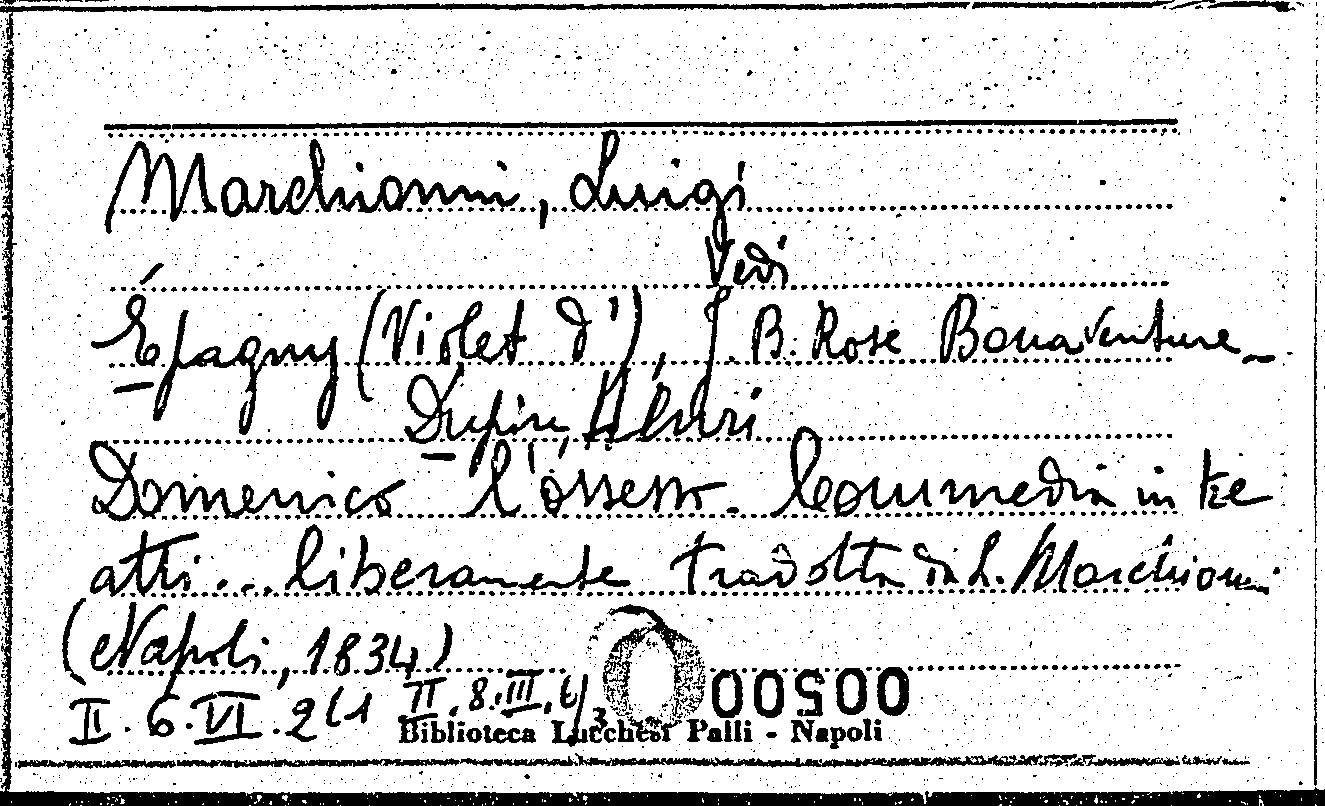 Marchionni, Luigi
Vedi
Épagny (Violet d'), J. B. Rose Bonaventure_
Dupin, Henri
Domenico l'ossesso. Commedia in tre
atti... liberamente tradotta da L. Marchionni
(Napoli, 1834)
II. 6. VI. 2(1 II. 8. III. 6/3 00500
Biblioteca Lucchesi Palli - Napoli